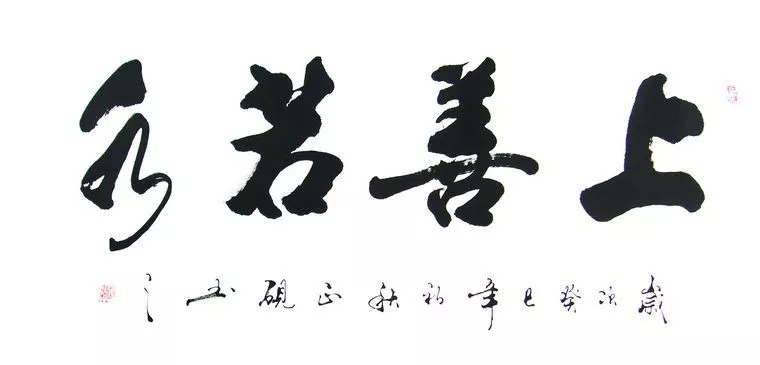 上善若水
岁次癸巳年初秋正砚书之